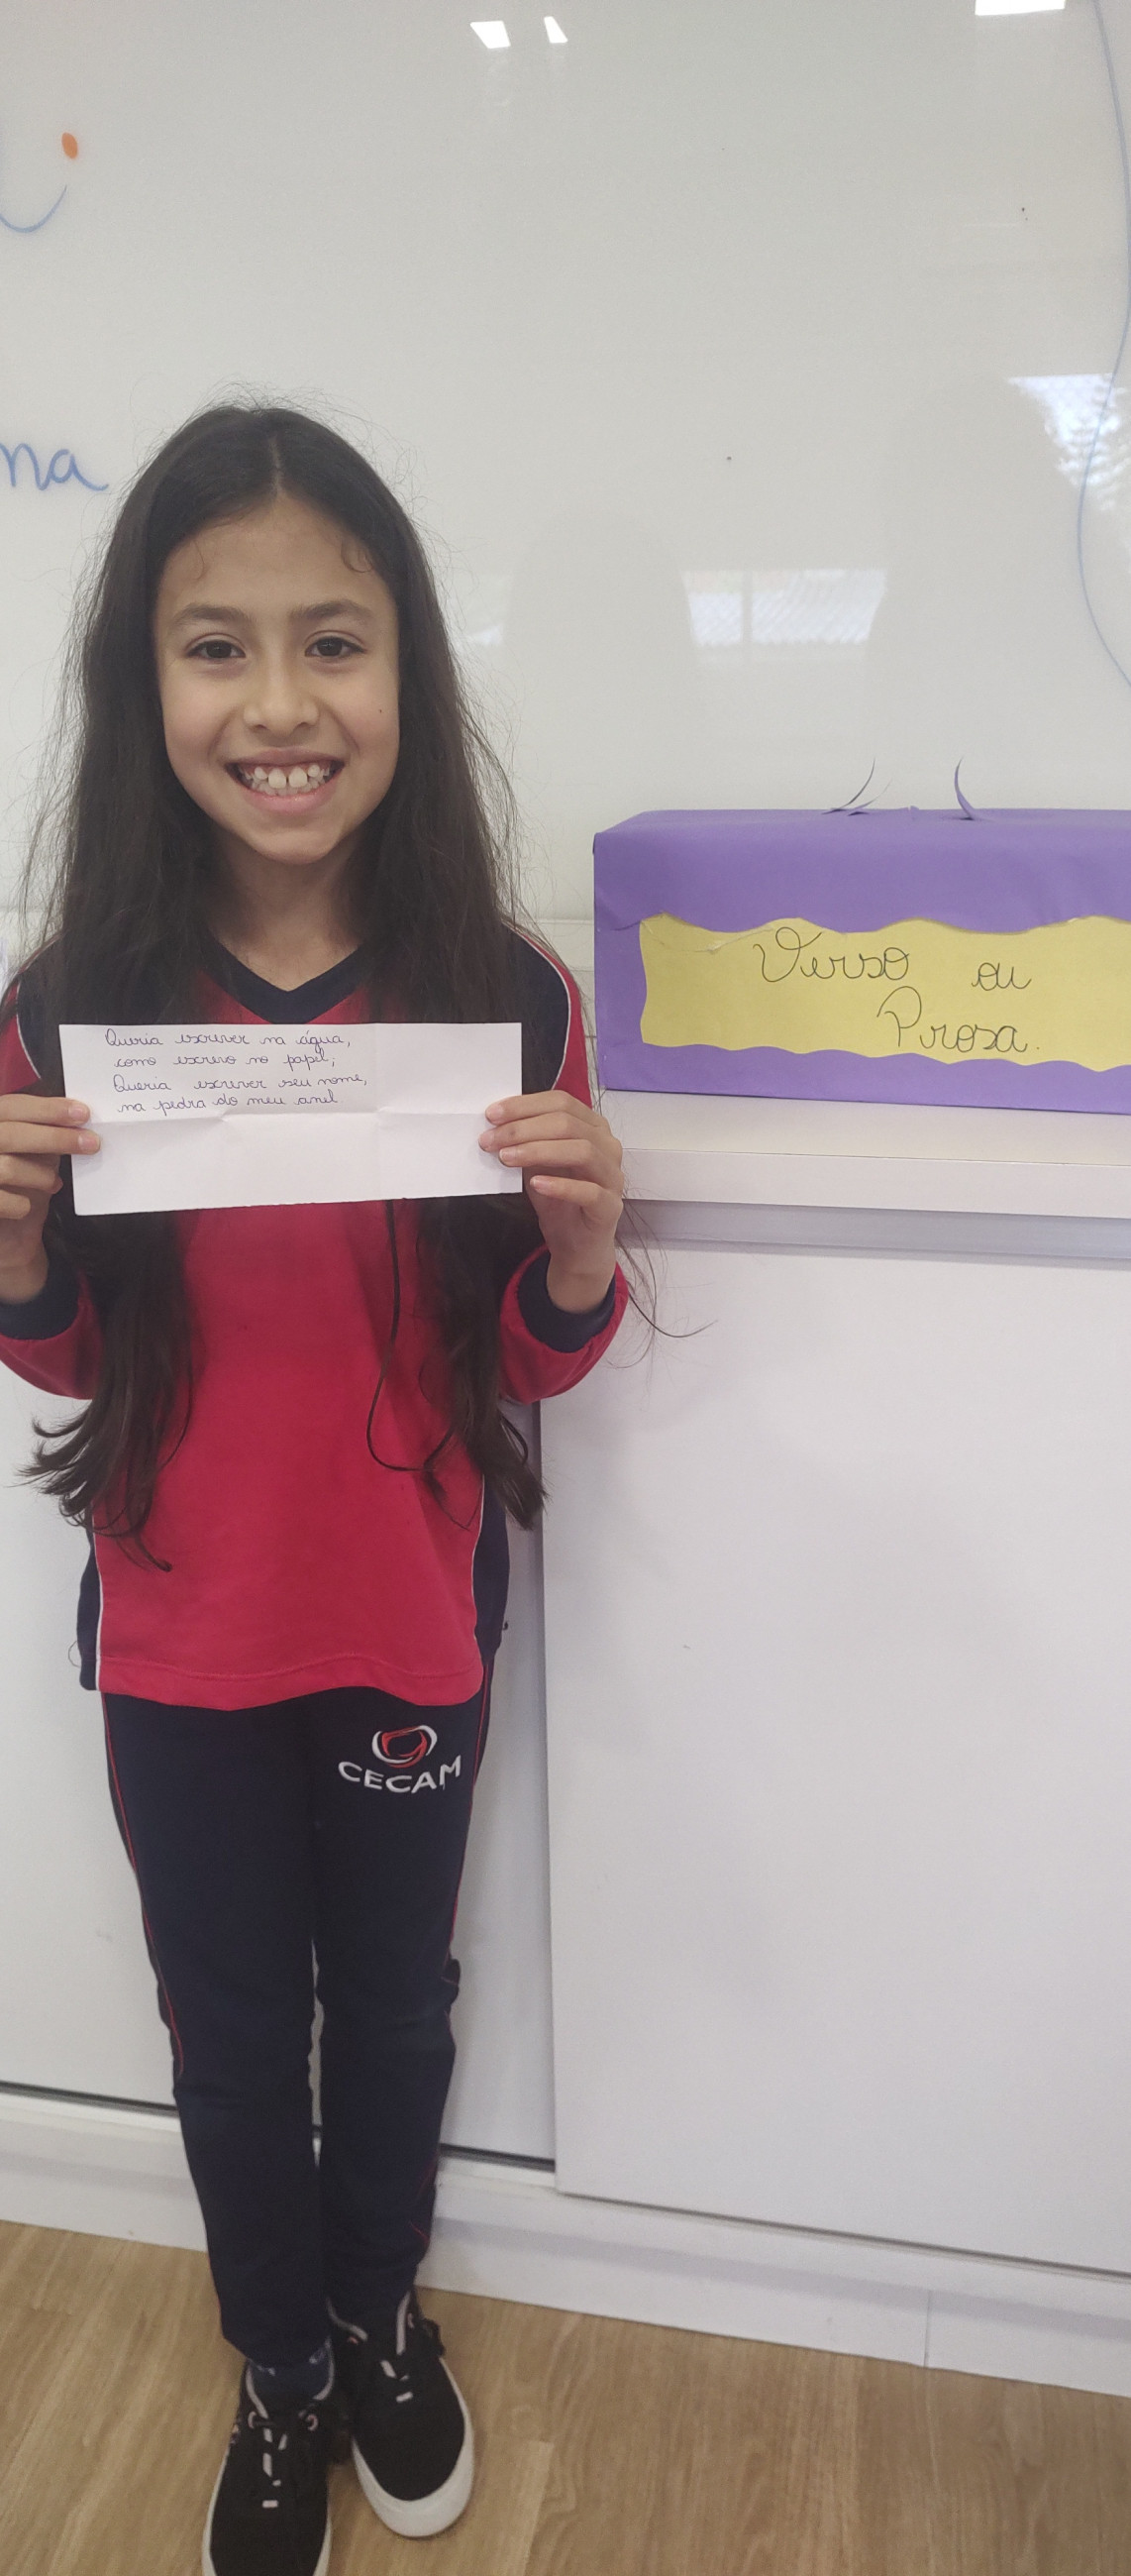 na
Queria escrever na água,
como escrevo no papel;
Queria escrever seu nome,
na pedra do meu anel
Verso ou
Prosa.
CECAM